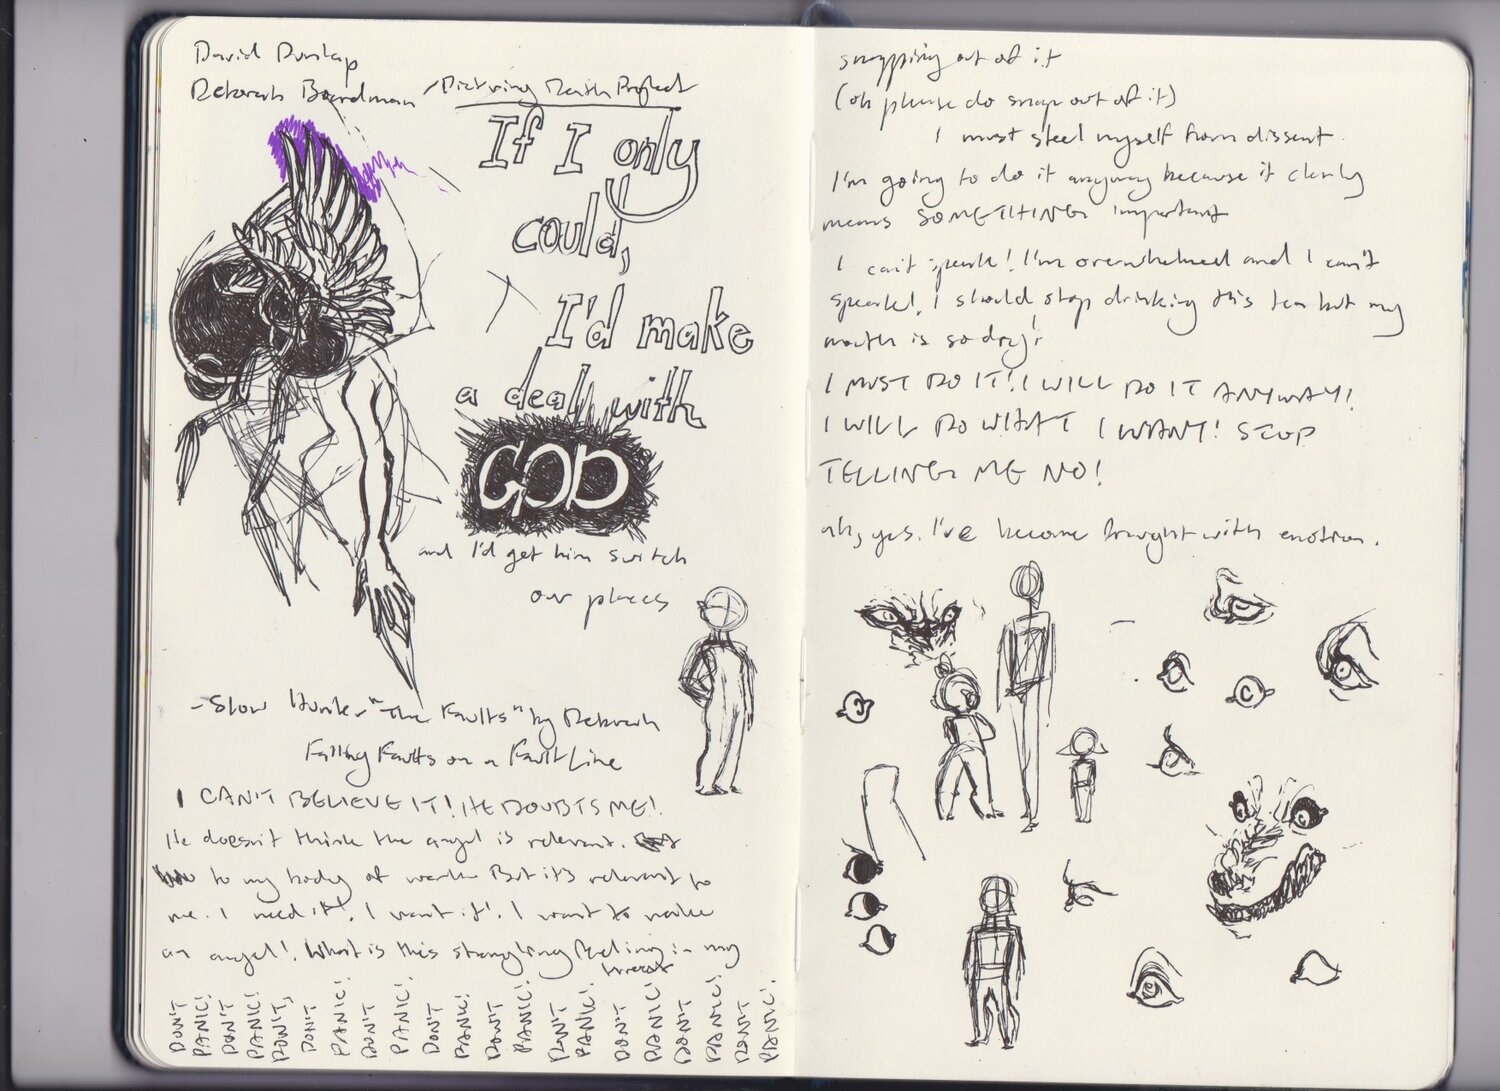 David Dunlap
Deborah Boardman - Picturing Faith Project
If I only
could,
I'd make
a deal with
GOD
and I'd get him switch
our places
- Slow Hunter "The Faults" by Deborah
Falling Faults on a Fault Line
I CAN'T BELIEVE IT! HE DOUBTS ME!
He doesn't think the angel is relevant.
to my body of work. But it's relevant to
me. I need it! I want it! I want to make
an angel! What is this strangling feeling in my
throat
DON'T
PANIC!
DON'T
PANIC!
DON'T,
DON'T
PANIC!
DON'T
PANIC!
DON'T
PANIC!
DON'T
PANIC!
DON'T
PANIC!
DON'T
PANIC!
DON'T
PANIC!
DON'T
PANIC!
snapping out of it
(oh please do snap out of it)
I must steel myself from dissent.
I'm going to do it anyway because it clearly
means SOMETHING important
I can't speak! I'm overwhelmed and I can't
speak! I should stop drinking this tea but my
mouth is so dry!
I MUST DO IT! I WILL DO IT ANYWAY!
I WILL DO WHAT I WANT! STOP
TELLING ME NO!
ah, yes. I've become fraught with emotion.